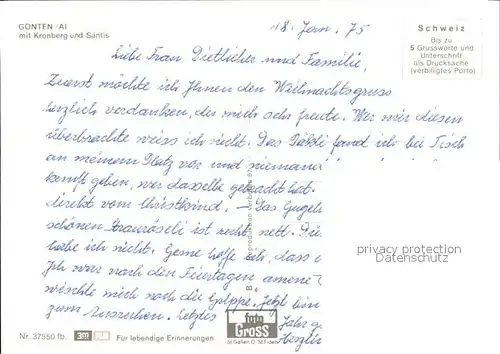 GONTEN / AI
mit Kronberg und Säntis
18. Jan. 75
Schweiz
Bis zu
5 Grussworte und
Unterschrift
als Drucksache
(verbilligtes Porto)
Liebe Frau Dietlicher und Familie,
Zuerst möchte ich Ihnen den Weihnachtsgruss
herzlich verdanken, der mich sehr freute. Wer mir diesen
überbrachte weiss ich nicht. Das Päckli fand ich bei Tisch
an meinem Platz vor und niemand
kunft geben, wer dasselbe gebracht hat.
direkt vom Christkind. – Das Gugel
schönen ist recht nett.
habe ich nicht. Gerne hoffe ich, dass
Ich war nach den Feiertagen
wischte mich noch die Grippe. Jetzt bin
zum Ausruhen. Letztes Jahr
Herzlic
privacy protection
Datenschutz
Nr. 37550 fb.
Für lebendige Erinnerungen
foto
GROSS
St. Gallen